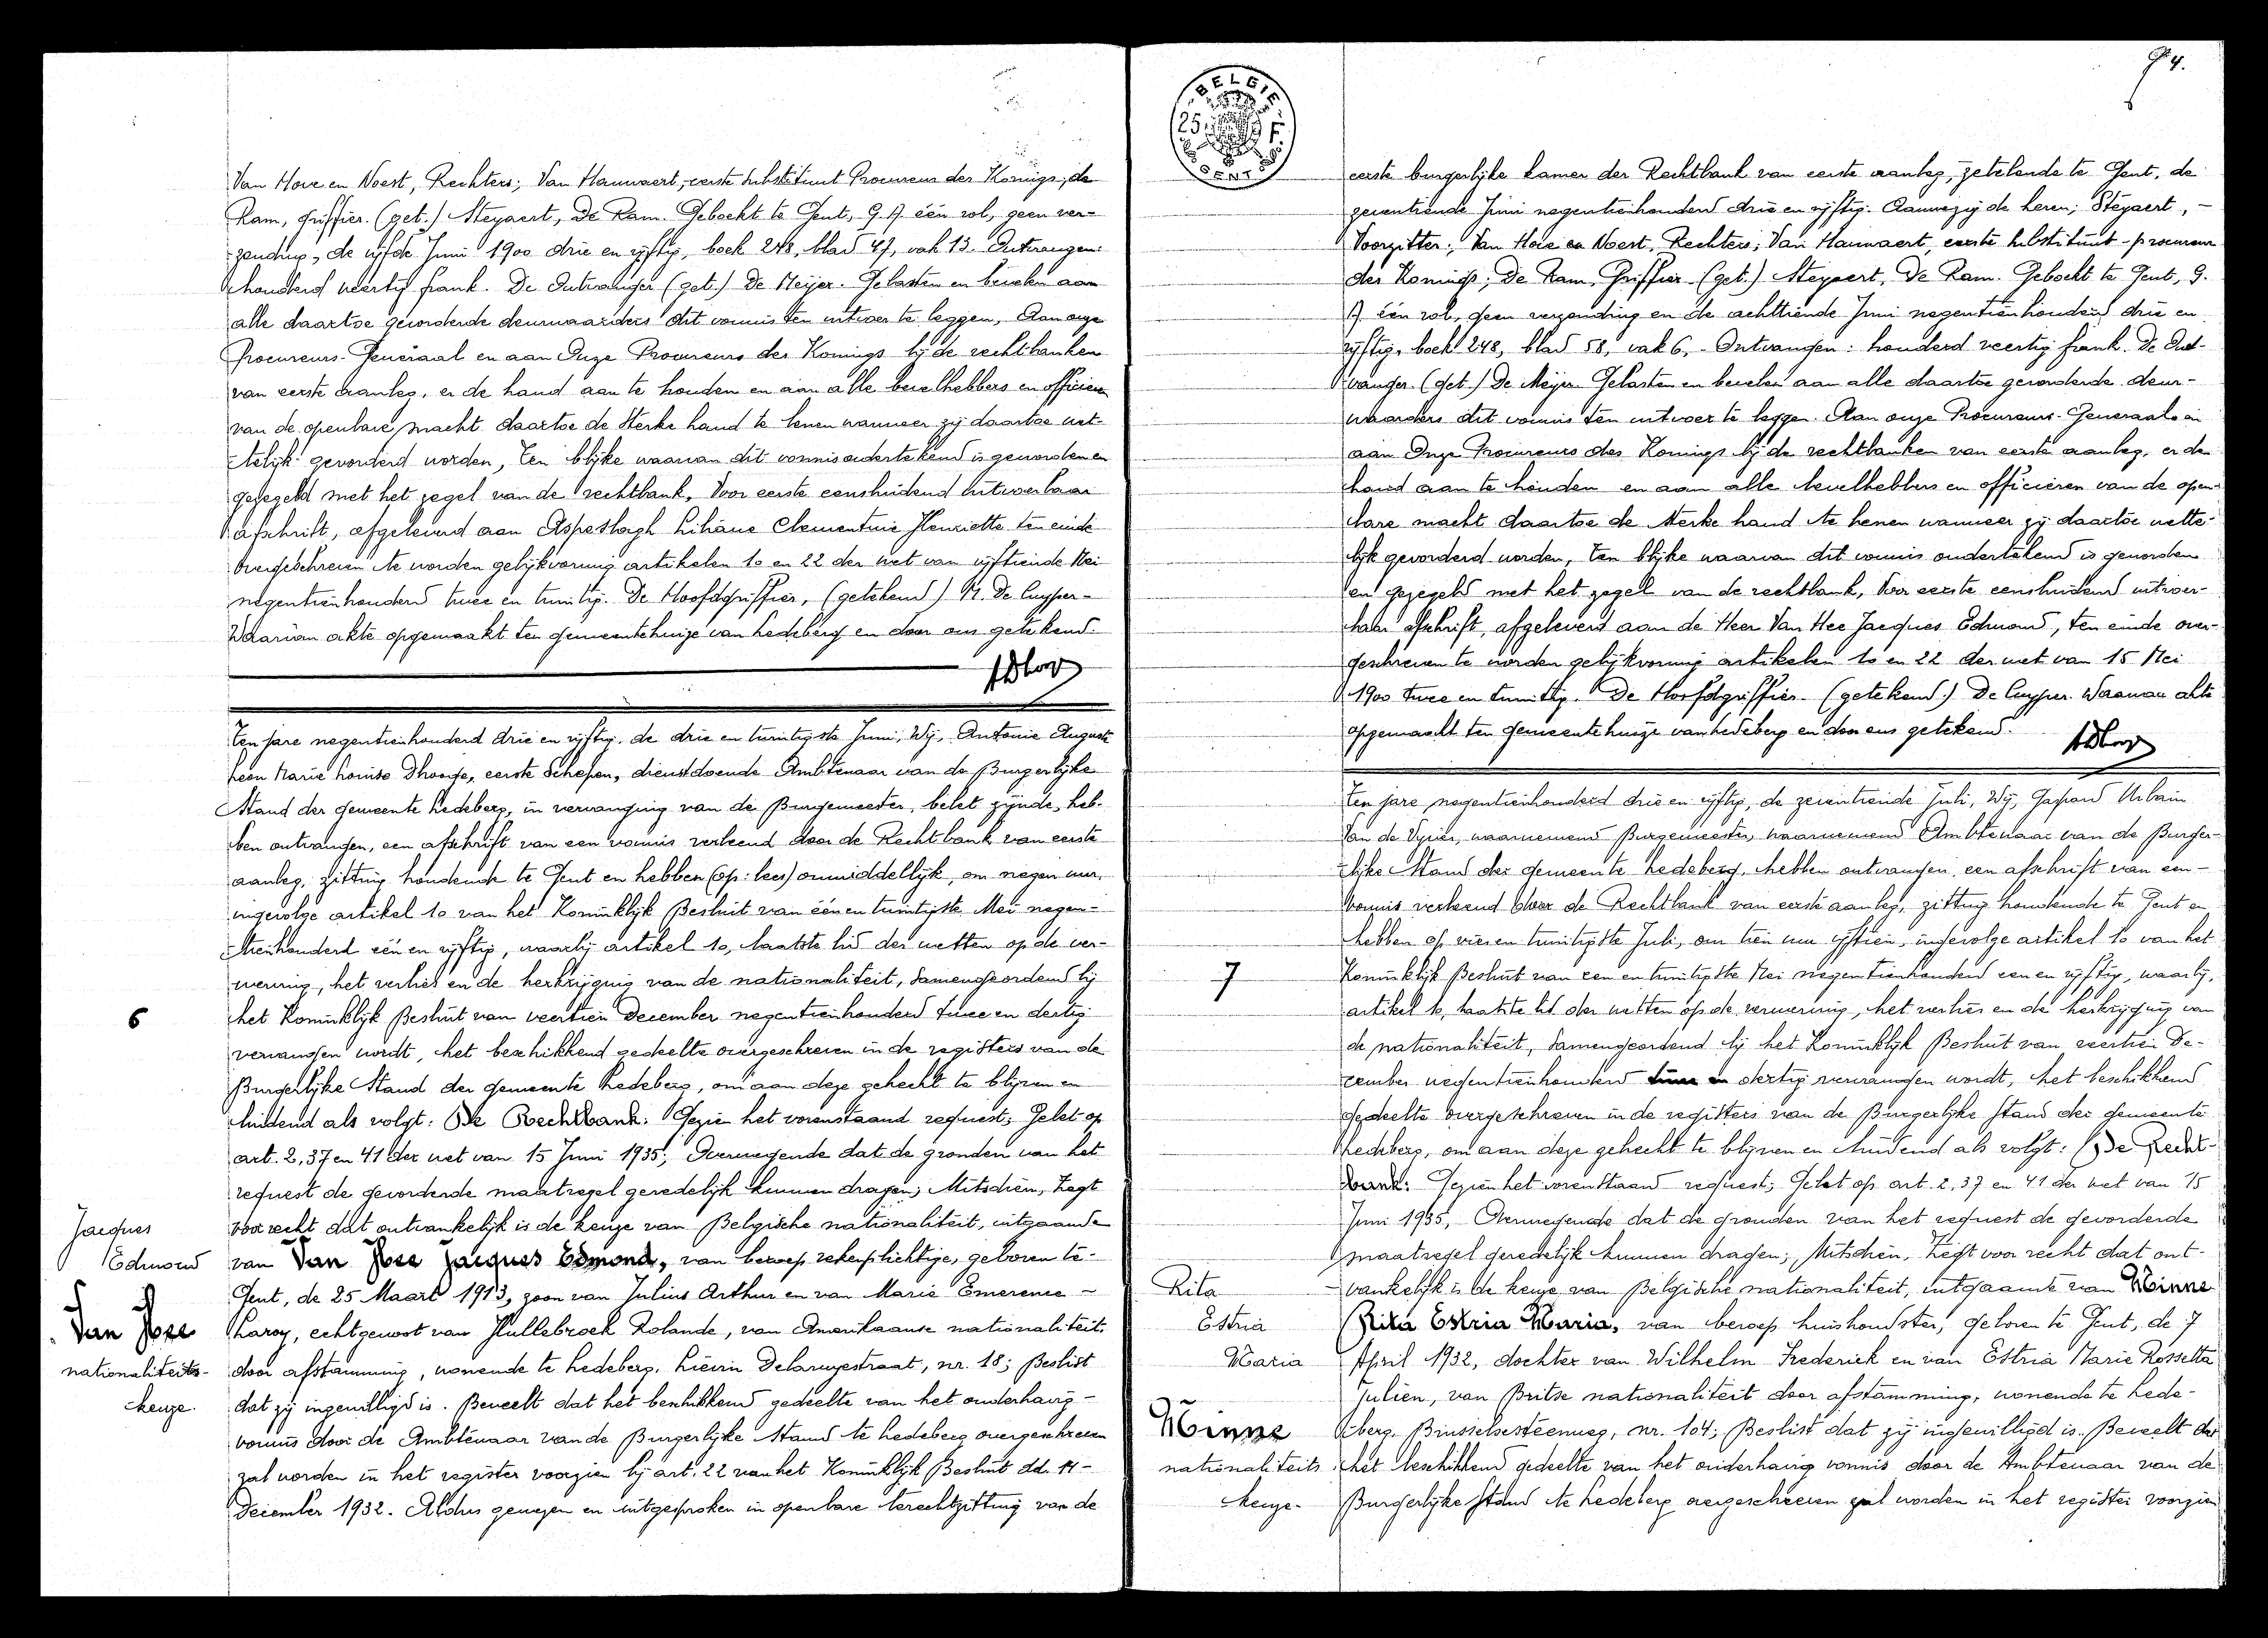 Van Hove en Voest, Rechters; Van Hauwaert, eerste substituut Procureur des Konings; de
Ram, griffier. (get.) Steyaert, De Ram. Geboekt te Gent, G. A één rol, geen ver-
zending, de vijfde Juni 1900 drie en vijftig, boek 248, blad 47, vak 13. Ontvangen:
honderd veertig frank. De Ontvanger (get.) De Meijer. Gelasten en bevelen aan
alle daartoe gevorderde deurwaarders dit vonnis ten uitvoer te leggen, Aan onze
Procureurs-Generaal en aan Onze Procureurs des Konings bij de rechtbanken
van eerste aanleg, er de hand aan te houden en aan alle bevelhebbers en officieren
van de openbare macht daartoe de sterke hand te lenen wanneer zij daartoe wet-
telijk gevorderd worden, Ten blijke waarvan dit vonnis ondertekend is geworden en
gezegeld met het zegel van de rechtbank, Voor eerste eensluidend uitvoerbaar
afschrift, afgeleverd aan Aspeslagh Liliane Clementine Henriette ten einde
overgeschreven te worden gelijkvormig artikelen 10 en 22 der wet van vijftiende Mei
negentienhonderd twee en twintig. De Hoofdgriffier, (getekend) M. De Cuyper-
Waarvan akte opgemaakt ten gemeentehuize van Ledeberg en door ons getekend.
Ten jare negentienhonderd drie en vijftig, de drie en twintigste Juni, Wij, Antonie August
Leon Marie Louise Dhooge, eerste Schepen, dienstdoende Ambtenaar van de Burgerlijke
Stand der gemeente Ledeberg, in vervanging van de Burgemeester, belet zijnde, heb-
ben ontvangen, een afschrift van een vonnis verleend door de Rechtbank van eerste
aanleg, zitting houdende te Gent en hebben (op: lees) onmiddellijk, om negen uur,
ingevolge artikel 10 van het Koninklijk Besluit van één en twintigste Mei negen-
tienhonderd één en vijftig, waarbij artikel 10, laatste lid der wetten op de ver-
werving, het verlies en de herkrijging van de nationaliteit, samengeordend bij
6
het Koninklijk Besluit van veertien December negentienhonderd twee en dertig
vervangen wordt, het beschikkend gedeelte overgeschreven in de registers van de
Burgerlijke Stand der gemeente Ledeberg, om aan deze gehecht te blijven en
luidend als volgt: De Rechtbank: Gezien het vorenstaand request; Gelet op
art. 2, 37 en 41 der wet van 15 Juni 1935; Overwegende dat de gronden van het
request de gevorderde maatregel geredelijk kunnen dragen; Mitsdien, Zegt
voor recht dat ontvankelijk is de keuze van Belgische nationaliteit, uitgaande
van Van Hee Jacques Edmond, van beroep rekenplichtige, geboren te
Gent, de 25 Maart 1913, zoon van Julius Arthur en van Marie Emerence
Laroy, echtgenoot van Hullebroeck Rolande, van Amerikaanse nationaliteit
door afstamming, wonende te Ledeberg, Liévin Delaruyestraat, nr. 18; Beslist
dat zij ingewilligd is. Beveelt dat het beschikkend gedeelte van het onderhavig
vonnis door de Ambtenaar van de Burgerlijke Stand te Ledeberg overgeschreven
zal worden in het register voorzien bij art. 22 van het Koninklijk Besluit dd. 14-
December 1932. Aldus gewezen en uitgesproken in openbare terechtzitting van de
Jacques
Edmond
Van Hee
nationaliteits-
keuze.
BELGIE
25
GENT
94.
eerste burgerlijke kamer der Rechtbank van eerste aanleg, zetelende te Gent, de
zeventiende Juni negentienhonderd drie en vijftig. Aanwezig de heren; Steyaert, -
Voorzitter; Van Hove en Voest, Rechters; Van Hauwaert, eerste substituut-procureur
des Konings; De Ram, Griffier. (get.) Steyaert, De Ram. Geboekt te Gent, G.
A één rol, geen verzending en de achttiende Juni negentienhonderd drie en
vijftig, boek 248, blad 58, vak 6, - Ontvangen: honderd veertig frank. De Ont-
vanger. (get.) De Meijer. Gelasten en bevelen aan alle daartoe gevorderde deur-
waarders dit vonnis ten uitvoer te leggen. Aan onze Procureurs-Generaal en
aan Onze Procureurs des Konings bij de rechtbanken van eerste aanleg, er de
hand aan te houden en aan alle bevelhebbers en officieren van de open-
bare macht daartoe de sterke hand te lenen wanneer zij daartoe wette-
lijk gevorderd worden, Ten blijke waarvan dit vonnis ondertekend is geworden
en gezegeld met het zegel van de rechtbank, Voor eerste eensluidend uitvoer-
baar afschrift, afgeleverd aan de Heer Van Hee Jacques Edmond, ten einde over-
geschreven te worden gelijkvormig artikelen 10 en 22 der wet van 15 Mei
1900 twee en twintig. De Hoofdgriffier. (getekend) De Cuyper. Waarvan akte
opgemaakt ten gemeentehuize van Ledeberg en door ons getekend.
Ten jare negentienhonderd drie en vijftig, de zeventiende Juli, Wij, Gaspard Urbain
Van de Vyver, waarnemend Burgemeester, waarnemend Ambtenaar van de Burger-
lijke Stand der gemeente Ledeberg, hebben ontvangen, een afschrift van een
vonnis verleend door de Rechtbank van eerste aanleg, zitting houdende te Gent en
hebben op vier en twintigste Juli, om tien uur vijftien, ingevolge artikel 10 van het
7
Koninklijk Besluit van een en twintigste Mei negentienhonderd een en vijftig, waarbij,
artikel 10, laatste lid der wetten op de verwerving, het verlies en de herkrijging van
de nationaliteit, samengeordend bij het Koninklijk Besluit van veertien De-
cember negentienhonderd twee en dertig vervangen wordt, het beschikkend
gedeelte overgeschreven in de registers van de Burgerlijke Stand der gemeente
Ledeberg, om aan deze gehecht te blijven en luidend als volgt: De Recht-
bank: Gezien het vorenstaand request; Gelet op art. 2, 37 en 41 der wet van 15
Juni 1935, Overwegende dat de gronden van het request de gevorderde
maatregel geredelijk kunnen dragen; Mitsdien, Zegt voor recht dat ont-
vankelijk is de keuze van Belgische nationaliteit, uitgaande van Minne
Rita Estria Maria, van beroep huishoudster, geboren te Gent, de 7
April 1932, dochter van Wilhelm Frederick en van Estria Marie Rossetta
Julien, van Britse nationaliteit door afstamming, wonende te Lede-
berg, Brusselsesteenweg, nr. 104; Beslist dat zij ingewilligd is. Beveelt dat
het beschikkend gedeelte van het onderhavig vonnis door de Ambtenaar van de
Burgerlijke Stand te Ledeberg overgeschreven zal worden in het register voorzien
Rita
Estria
Maria
Minne
nationaliteits
keuze.